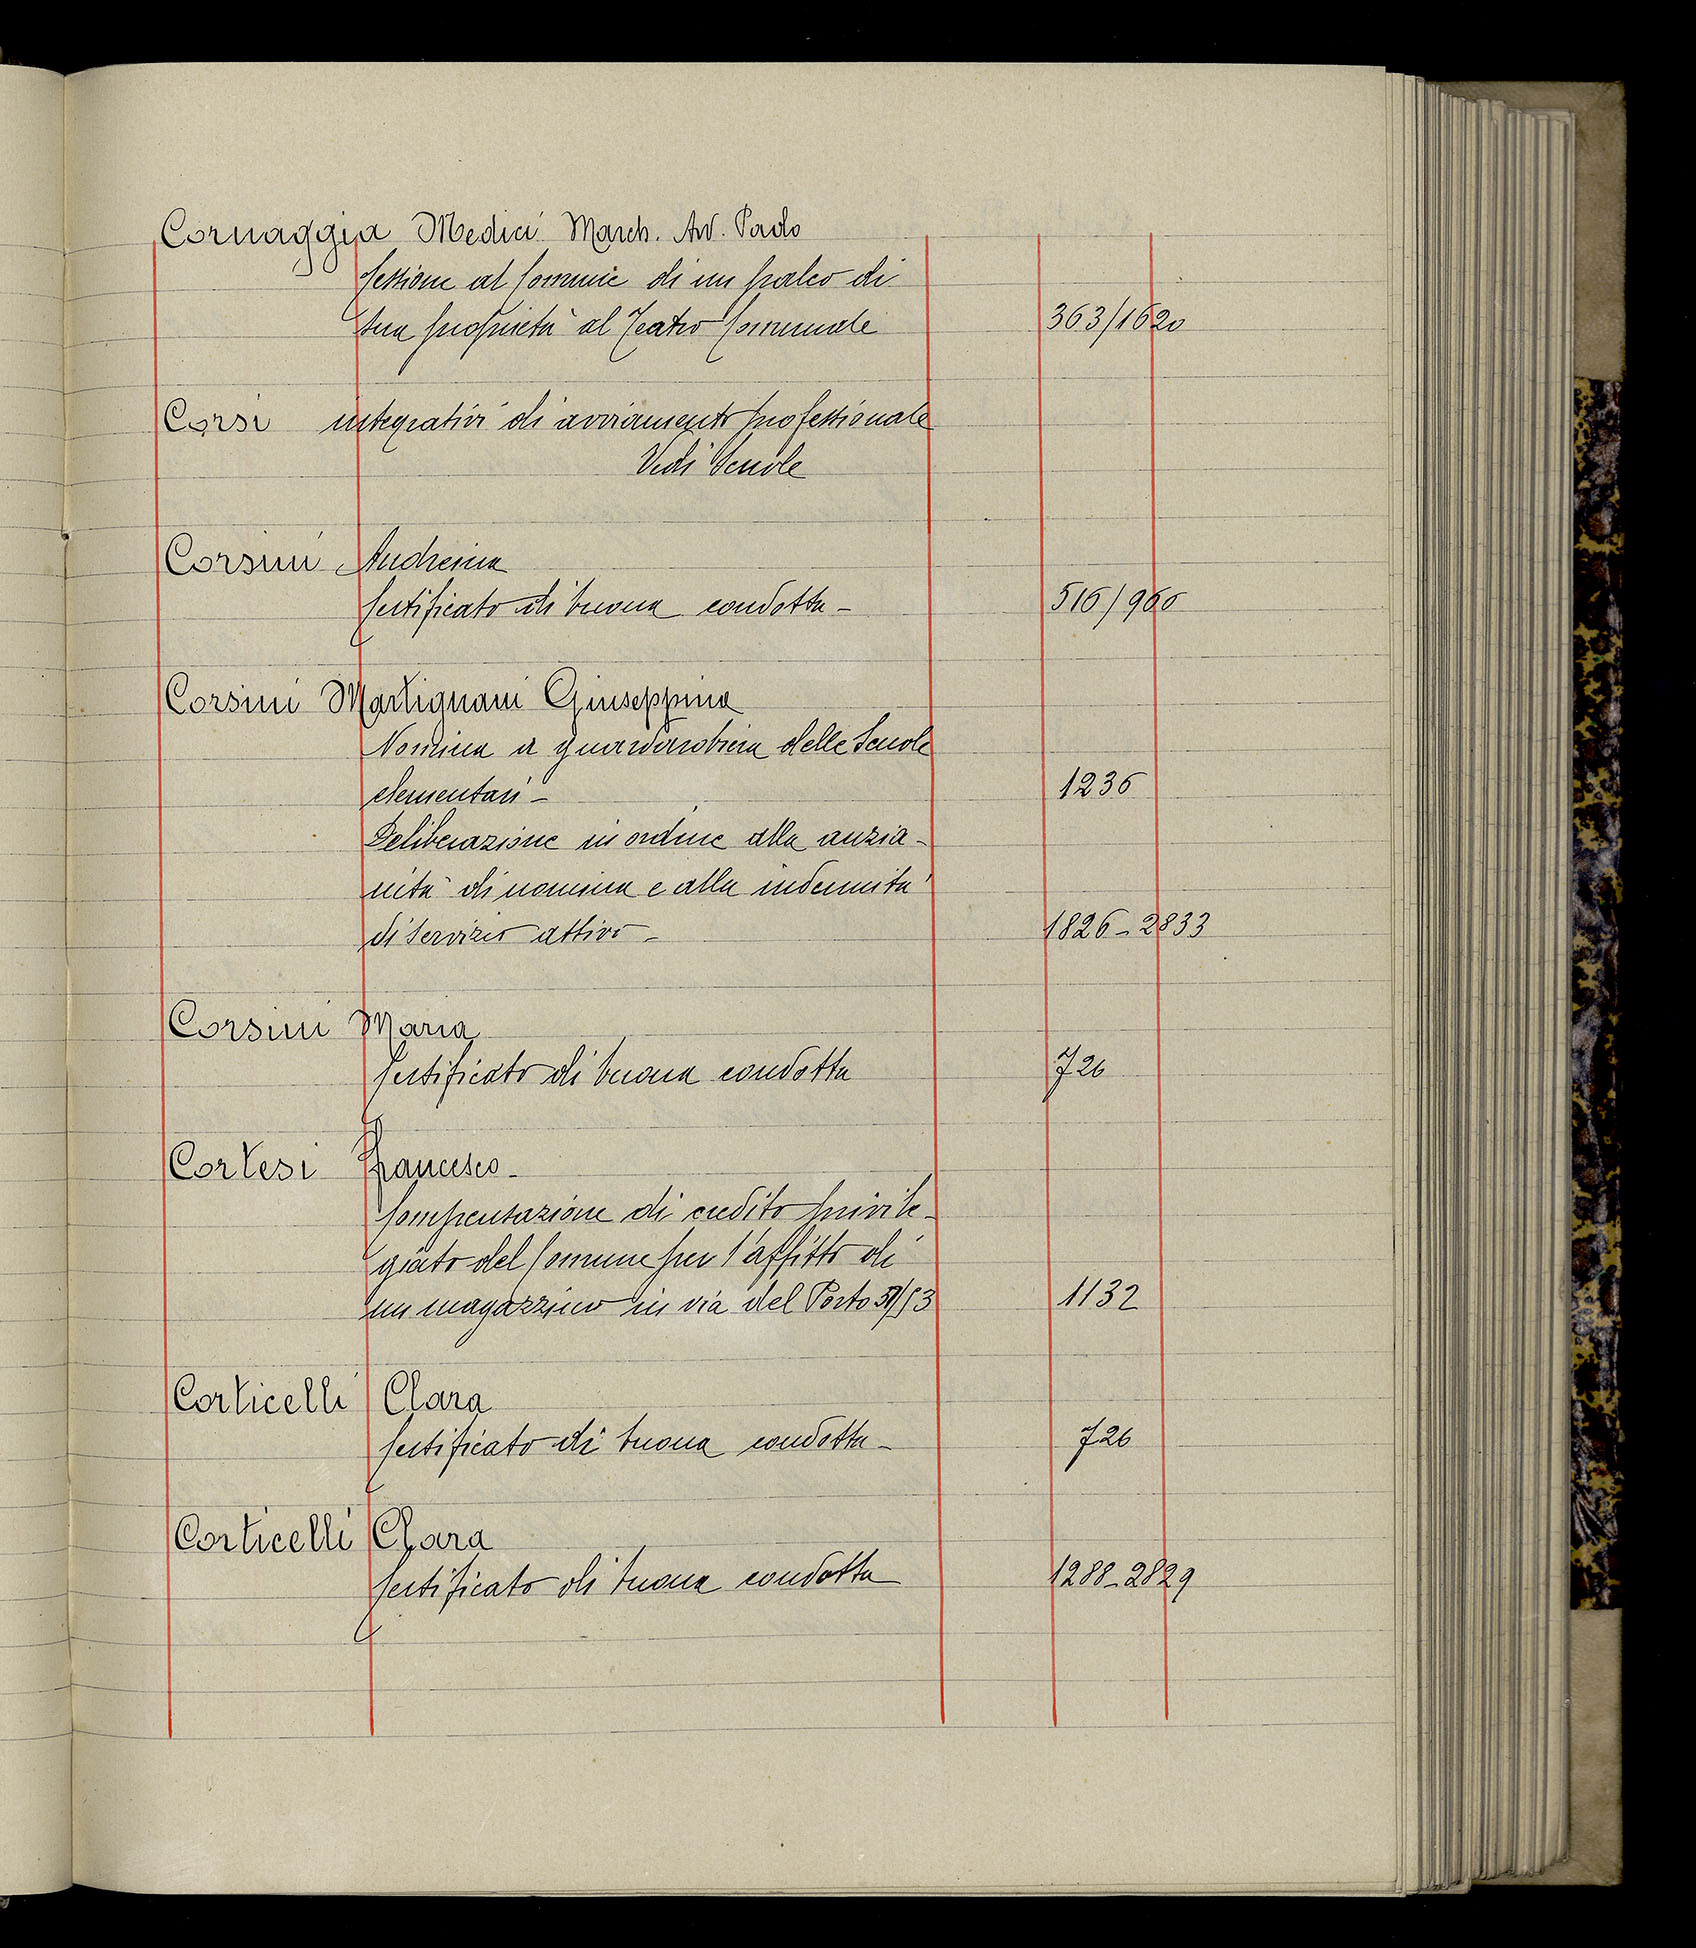 Cornaggia Medici March. Avv. Paolo
Cessione al Comune di un palco di
sua proprietà al Teatro Comunale 363/1620
Corsi integrativi di avviamento professionale
Vedi Scuole
Corsini Andreina
Certificato di buona condotta - 516/960
Corsini Martignani Giuseppina
Nomina a guardarobiera delle Scuole
elementari - 1236
Deliberazione in ordine alla anzia-
nità di nomina e alla indennità
di servizio attivo - 1826-2833
Corsini Maria
Certificato di buona condotta 726
Cortesi Francesco -
Compensazione di credito privile-
giato del Comune per l'affitto di
un magazzino in via del Porto 51/53 1132
Corticelli Clara
Certificato di buona condotta - 726
Corticelli Clara
Certificato di buona condotta 1288-2829